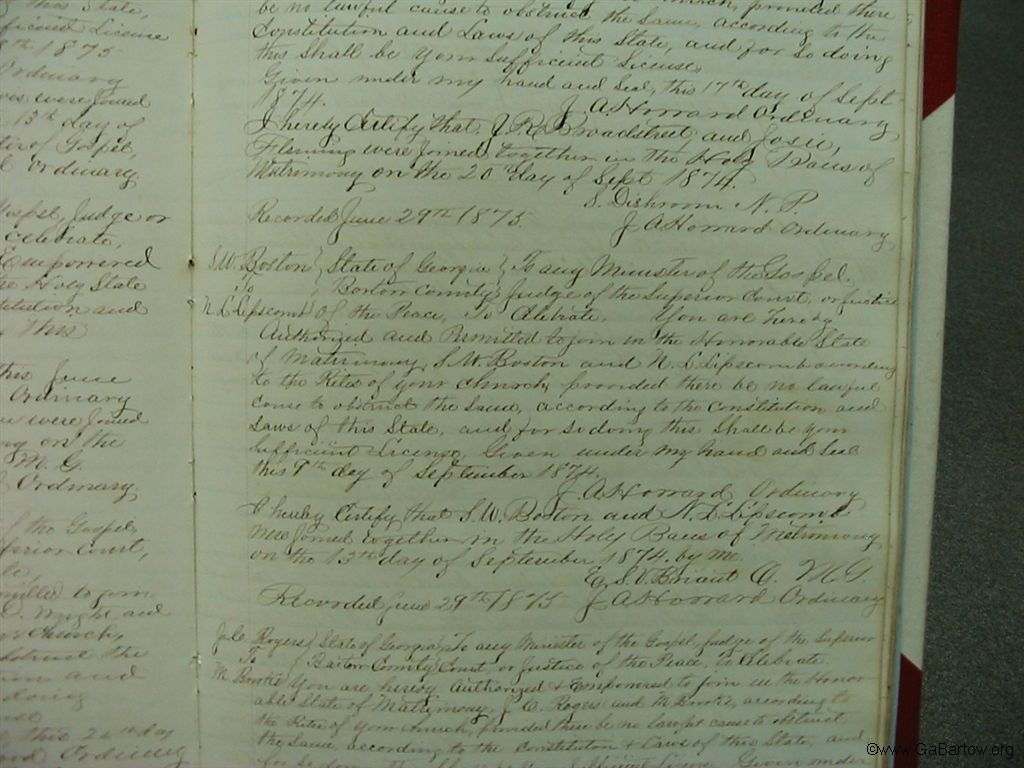 this State,
ficient License
8th 1875
Ordinary
were Joined
13th day of
ter of Gospel,
Ordinary
Gospel, Judge or
Celebrate,
Empowered
the Holy State
stitution and
this
this June
Ordinary
were Joined
on the
M. G.
Ordinary
of the Gospel,
perior Court,
to join
D. Wright and
Church,
obstruct the
and
doing
this 20th day
Ordinary
be no lawful cause to obstruct the Same, according to the
Constitution and Laws of this State, and for So doing
this Shall be your Sufficient License
Given under my hand and Seal, this 17th day of Sept
1874. J A Howard Ordinary
I hereby Certify that J. R. Broadstreet and Josie,
Fleming were Joined together in the Holy Banes of
Matrimony on the 20th day of Sept 1874.
S. Dishroom N. P.
Recorded June 29th 1875. J A Howard Ordinary
S. W. Boston } State of Georgia } To any Minister of the Gospel.
To } Bartow County } Judge of the Superior Court, or Justice
N. L. Lipscomb of the Peace, To Celebrate. You are hereby
Authorized and Permitted to join in the Honorable State
of Matrimony S. W. Boston and N. L Lipscomb according
to the Rites of your church, provided there be no lawful
cause to obstruct the Same, according to the Constitution and
Laws of this State, and for So doing this Shall be your
Sufficient License, Given under my hand and Seal
this 9th day of September 1874.
J. A Howard Ordinary
I hereby Certify that S. W. Boston and N. L Lipscomb
were Joined together in the Holy Banes of Matrimony
on the 13th day of September 1874. by me
E. S. V. Briant M. G.
Recorded June 29th 1875 J A Howard Ordinary
J. C. Rogers } State of Georgia } To any Minister of the Gospel, Judge of the Superior
To } Bartow County } Court, or Justice of the Peace, to Celebrate.
M Brooke You are hereby Authorized & Empowered to join in the Honor
able State of Matrimony, J C. Rogers and M Brooke, according to
the Rites of your Church, provided there be no lawful cause to obstruct
the Same, according to the Constitution & Laws of this State, and
for So doing this Shall be your Sufficient License. Given under
©www.GaBartow.org